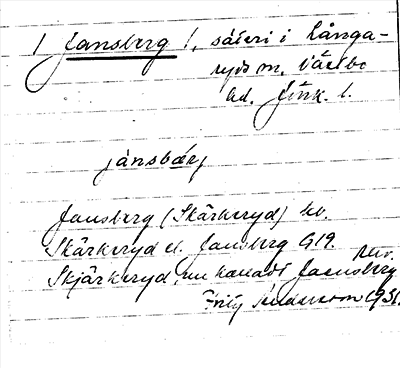 1 Jansberg /, säteri i Långa-
ryds sn. Västbo
hd. Jönk. l.
jànsbærj
Jansberg (Skärkeryd) kv.
Skärkeryd el. Jansberg G19.
Skjärkeryd, nu kalladt Jaensberg
Fritz Andersson 1931.